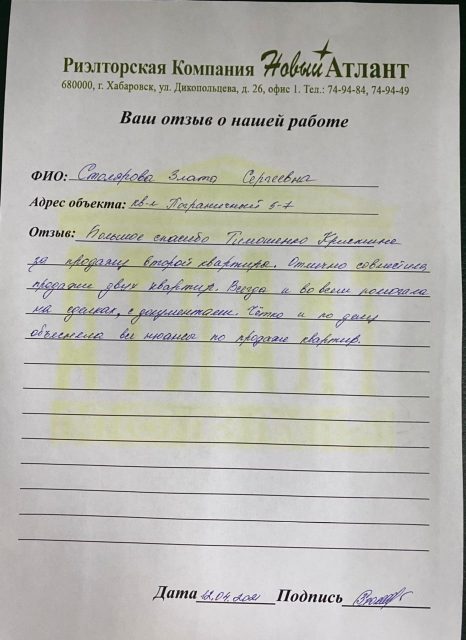 Риэлторская Компания Новый Атлант
680000, г. Хабаровск, ул. Дикопольцева, д. 26, офис 1. Тел.: 74-94-84, 74-94-49
Ваш отзыв о нашей работе
ФИО: Столярова Злата Сергеевна
Адрес объекта: кв-л Пограничный 5-7
Отзыв: Большое спасибо Тимошенко Кристине
за продажу второй квартиры. Отлично совместила
продажи двух квартир. Везде и во всем помогала
на сделках, с документами. Чётко и по делу
объяснела все нюансы по продаже квартир.
Дата 12.04.2021 Подпись